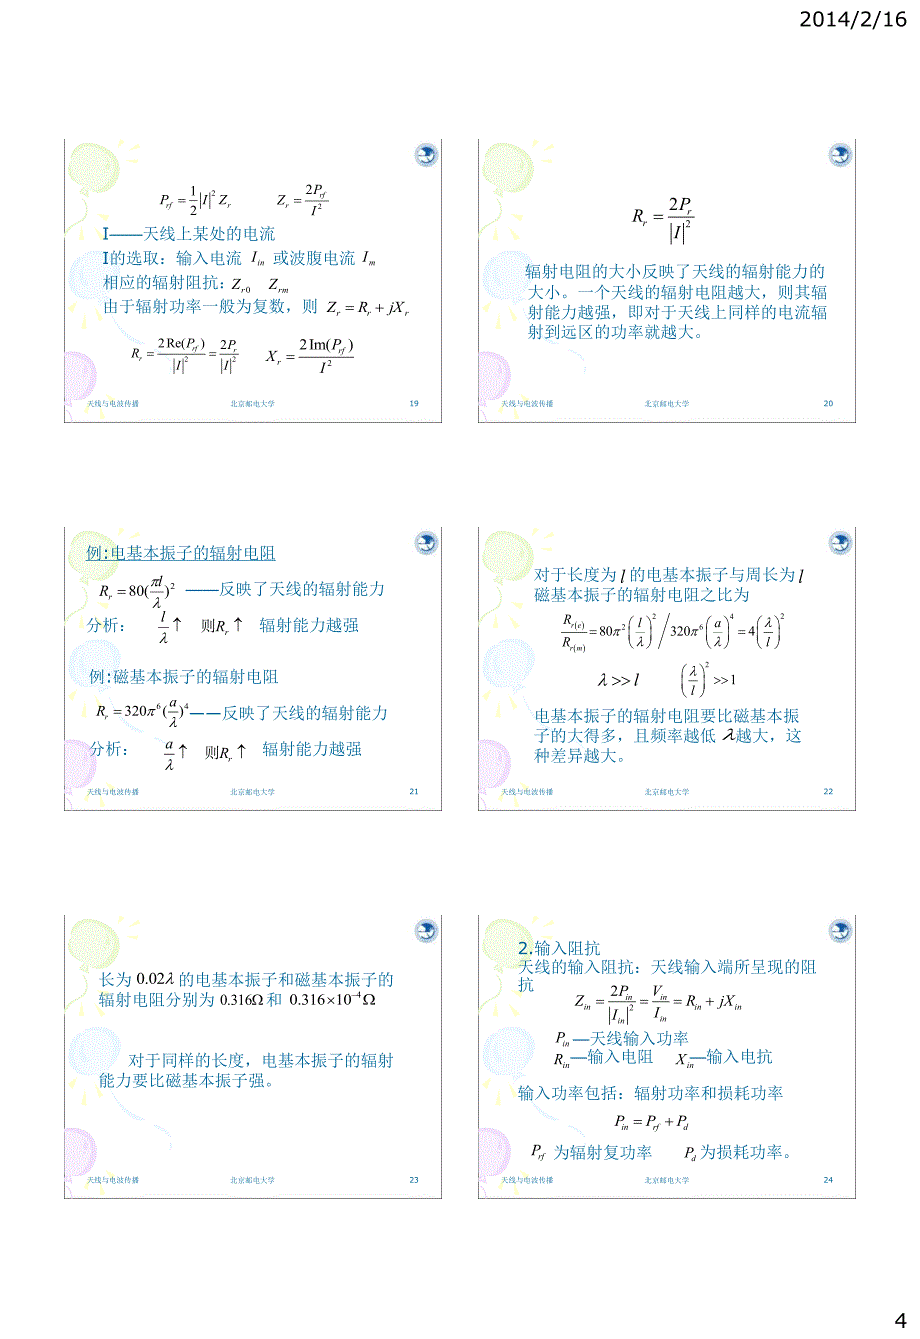 2014/2/16
P_rf = 1/2 |I|² Z_r    Z_r = 2P_rf / I²
I——天线上某处的电流
I的选取：输入电流 I_in 或波腹电流 I_m
相应的辐射阻抗：Z_r0  Z_rm
由于辐射功率一般为复数，则 Z_r = R_r + jX_r
R_r = 2Re(P_rf) / |I|² = 2P_r / |I|²    X_r = 2Im(P_rf) / I²
天线与电波传播 北京邮电大学 19
R_r = 2P_r / |I|²
辐射电阻的大小反映了天线的辐射能力的
大小。一个天线的辐射电阻越大，则其辐
射能力越强，即对于天线上同样的电流辐
射到远区的功率就越大。
天线与电波传播 北京邮电大学 20
例:电基本振子的辐射电阻
R_r = 80(πd/λ)² ——反映了天线的辐射能力
分析： l/λ ↑ 则R_r ↑ 辐射能力越强
例:磁基本振子的辐射电阻
R_r = 320π⁶(a/λ)⁴ ——反映了天线的辐射能力
分析： a/λ ↑ 则R_r ↑ 辐射能力越强
天线与电波传播 北京邮电大学 21
对于长度为 l 的电基本振子与周长为 l
磁基本振子的辐射电阻之比为
R_r(e) / R_r(m) = 80π² (l/λ)² / 320π⁶ (a/λ)⁴ = 4(λ/l)²
λ >> l    (λ/l)² >> 1
电基本振子的辐射电阻要比磁基本振
子的大得多，且频率越低 λ 越大，这
种差异越大。
天线与电波传播 北京邮电大学 22
长为 0.02λ 的电基本振子和磁基本振子的
辐射电阻分别为 0.316Ω 和 0.316×10⁻⁴Ω
对于同样的长度，电基本振子的辐射
能力要比磁基本振子强。
天线与电波传播 北京邮电大学 23
2.输入阻抗
天线的输入阻抗：天线输入端所呈现的阻
抗
Z_in = 2P_in / |I_in|² = V_in / I_in = R_in + jX_in
P_in —天线输入功率
R_in —输入电阻 X_in —输入电抗
输入功率包括：辐射功率和损耗功率
P_in = P_rf + P_d
P_rf 为辐射复功率 P_d 为损耗功率。
天线与电波传播 北京邮电大学 24
4